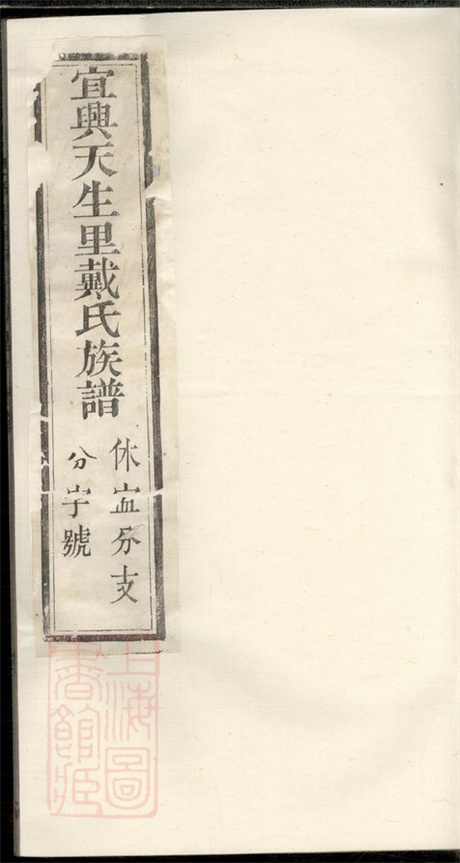 宜興天生里戴氏族譜
休寍分支
分字號
上海圖書館藏